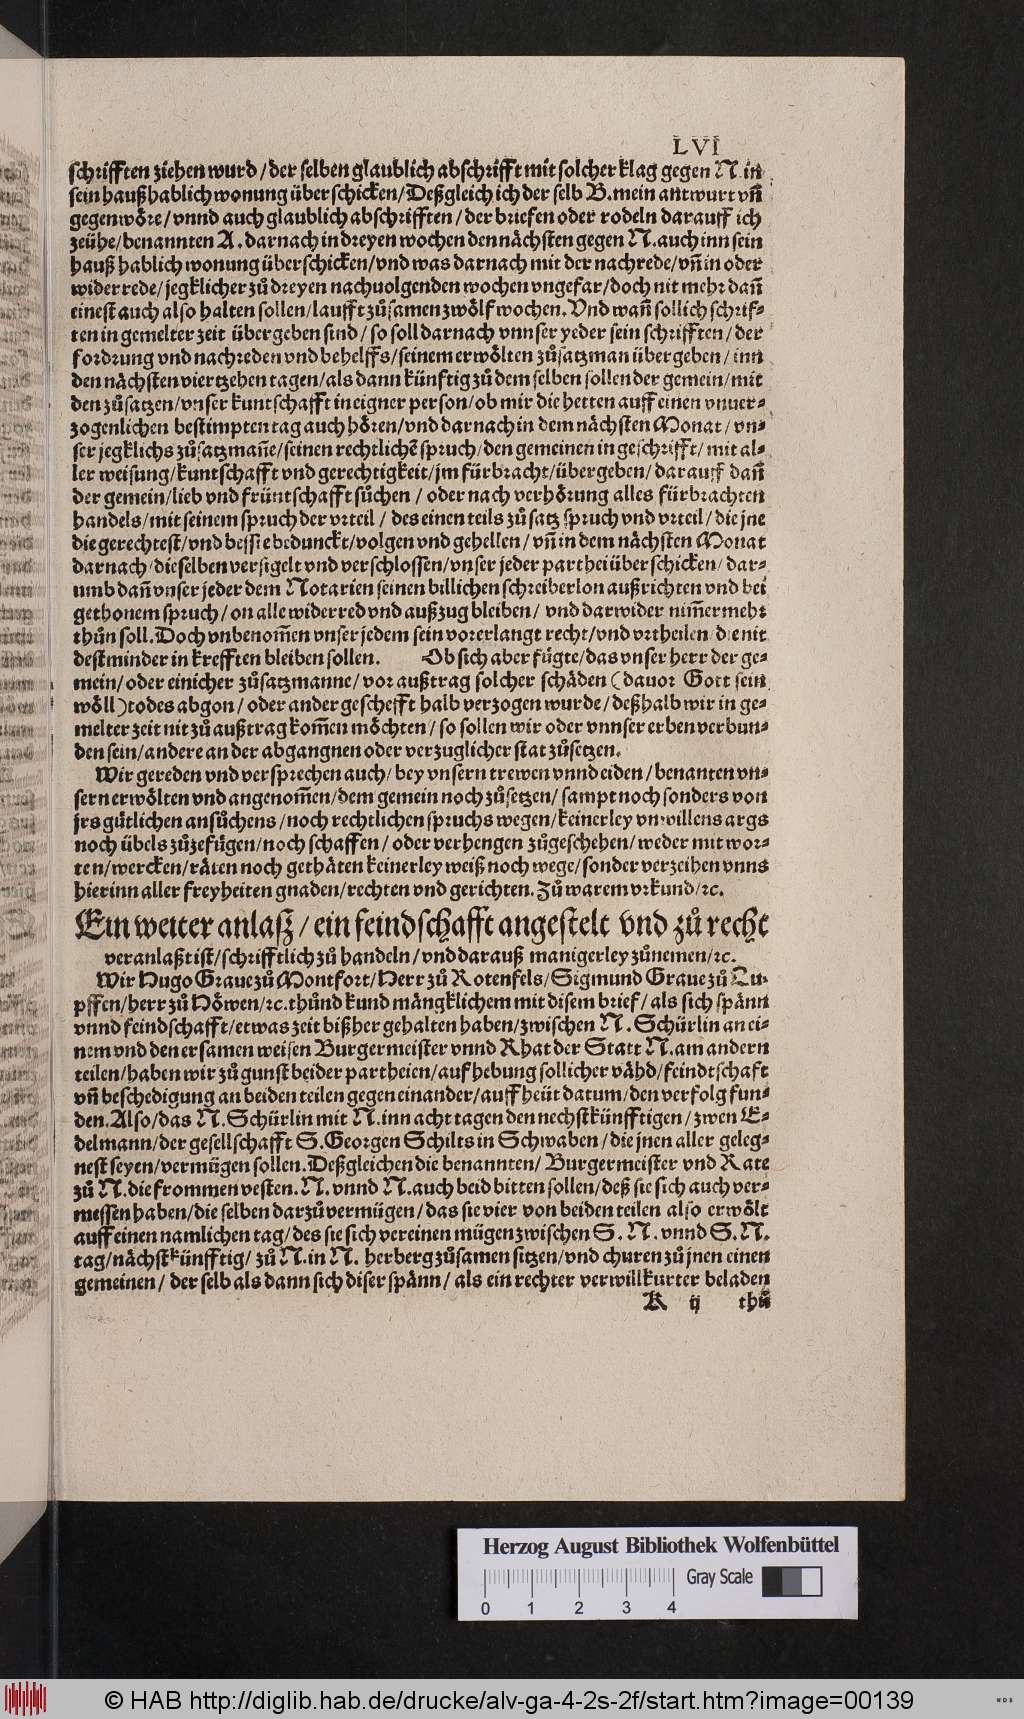 LVI
schrifften ziehen wurd / der selben glaublich abschrifft mit solcher klag gegen N. in
sein hauß hablich wonung überschicken / Deßgleich ich der selb B. mein antwurt vñ
gegenwöre / vnnd auch glaublich abschrifften / der briefen oder rodeln darauff ich
zeühe / benannten A. darnach in dreyen wochen den nächsten gegen N. auch inn sein
hauß hablich wonung überschicken / vnd was darnach mit der nachrede / vñ in oder
widerrede / jegklicher zů dreyen nachuolgenden wochen vngefar / doch nit mehr dañ
einest auch also halten sollen / laufft zůsamen zwölf wochen. Vnd wañ sollich schrif⸗
ten in gemelter zeit übergeben sind / so soll darnach vnnser yeder sein schrifften / der
fordrung vnd nachreden vnd behelffs / seinem erwölten zůsatzman übergeben / inn
den nächsten viertzehen tagen / als dann künftig zů dem selben sollen der gemein / mit
den zůsatzen / vnser kuntschafft in eigner person / ob mir die hetten auff einen vnuer⸗
zogenlichen bestimpten tag auch hören / vnd darnach in dem nächsten Monat / vn⸗
ser jegklichs zůsatzmañe / seinen rechtlichē spruch / den gemeinen in geschrifft / mit al⸗
ler weisung / kuntschafft vnd gerechtigkeit / jm fürbracht / übergeben / darauff dañ
der gemein / lieb vnd früntschafft sůchen / oder nach verhörung alles fürbrachten
handels / mit seinem spruch der vrteil / des einen teils zůsatz spruch vnd vrteil / die jne
die gerechtest / vnd besste bedunckt / volgen vnd gehellen / vñ in dem nächsten Monat
darnach / die selben versigelt vnd verschlossen / vnser jeder parthei überschicken / dar⸗
umb dañ vnser jeder dem Notarien seinen billichen schreiberlon außrichten vnd bei
gethonem spruch / on alle widerred vnd außzug bleiben / vnd darwider nim̃ermehr
thůn soll. Doch vnbenom̃en vnser jedem sein vorerlangt recht / vnd vrtheilen / die nit
dest minder in krefften bleiben sollen. Ob sich aber fügte / das vnser herr der ge⸗
mein / oder einicher zůsatzmanne / vor außtrag solcher schäden ( dauor Gott sein
wöll ) todes abgon / oder ander geschefft halb verzogen wurde / deßhalb wir in ge⸗
melter zeit nit zů außtrag kom̃en möchten / so sollen wir oder vnnser erben verbun⸗
den sein / andere an der abgangnen oder verzuglicher stat zůsetzen.
Wir gereden vnd versprechen auch / bey vnsern trewen vnnd eiden / benanten vn⸗
sern erwölten vnd angenom̃en / dem gemein noch zůsetzen / sampt noch sonders von
jrs gütlichen ansůchens / noch rechtlichen spruchs wegen / keinerley vnwillens args
noch übels zůzefügen / noch schaffen / oder verhengen zůgeschehen / weder mit wor⸗
ten / wercken / räten noch gethäten keinerley weiß noch wege / sonder verzeihen vnns
hierinn aller freyheiten gnaden / rechten vnd gerichten. Zů warem vrkund / ꝛc.
Ein weiter anlasz / ein feindschafft angestelt vnd zů recht
veranlaßt ist / schrifftlich zů handeln / vnd darauß manigerley zůnemen / ꝛc.
Wir Hugo Graue zů Montfort / Herr zů Rotenfels / Sigmund Graue zů Lu⸗
pffen / herr zů Höwen / ꝛc. thůnd kund mängklichem mit disem brief / als sich spänn
vnnd feindschafft / etwas zeit bißher gehalten haben / zwischen N. Schürlin an ei⸗
nem vnd den ersamen weisen Burgermeister vnnd Rhat der Statt N. am andern
teilen / haben wir zů gunst beider partheien / auf hebung sollicher vähd / feindtschaft
vñ beschedigung an beiden teilen gegen einander / auff heüt datum / den verfolg fun⸗
den. Also / das N. Schürlin mit N. inn acht tagen den nechstkünfftigen / zwen E⸗
delmann / der gesellschafft S. Georgen Schilts in Schwaben / die jnen aller geleg⸗
nest seyen / vermügen sollen. Deßgleichen die benannten / Burgermeister vnd Rate
zů N. die frommen vesten. N. vnnd N. auch beid bitten sollen / deß sie sich auch ver⸗
messen haben / die selben darzů vermügen / das sie vier von beiden teilen also erwölt
auff einen namlichen tag / des sie sich vereinen mügen zwischen S. N. vnnd S. N.
tag / nächstkünfftig / zů N. in N. herberg zůsamen sitzen / vnd churen zů jnen einen
gemeinen / der selb als dann sich diser spänn / als ein rechter verwillkurter beladen
K ij thů
Herzog August Bibliothek Wolfenbüttel
Gray Scale
0 1 2 3 4
© HAB http://diglib.hab.de/drucke/alv-ga-4-2s-2f/start.htm?image=00139